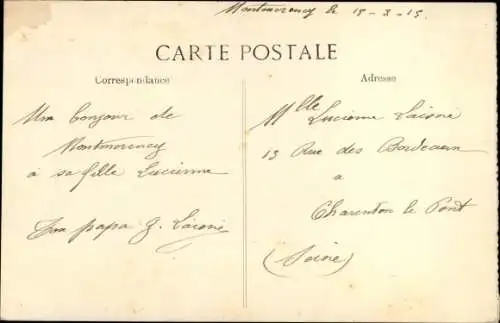 Montmorency le 15-3-15.
CARTE POSTALE
Correspondance
Adresse
Un bonjour de
Montmorency
à sa fille Lucienne
Ton papa J. Laisné
Mlle Lucienne Laisné
13 Rue des Bordeaux
a
Charenton le Pont
(Seine)